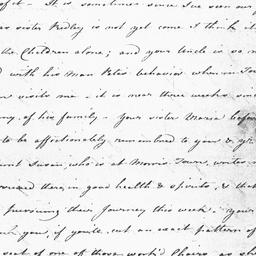 of it - It is sometime since I've seen our
sister Pedley is not yet come I think it
the Children alone; and your Uncle is so m
d with his Man Peter's behavior when in Town
visits me - it is near three weeks since
any of his family - Your sister Maria
to be affectionately remembered to you & yr
unt Susan, who is at Morris Town, writes
arrived there, in good health & spirits, & that
pursuing their Journey this week. Your
you, if you'll cut an exact pattern of
seat of one of those work'd Chairs